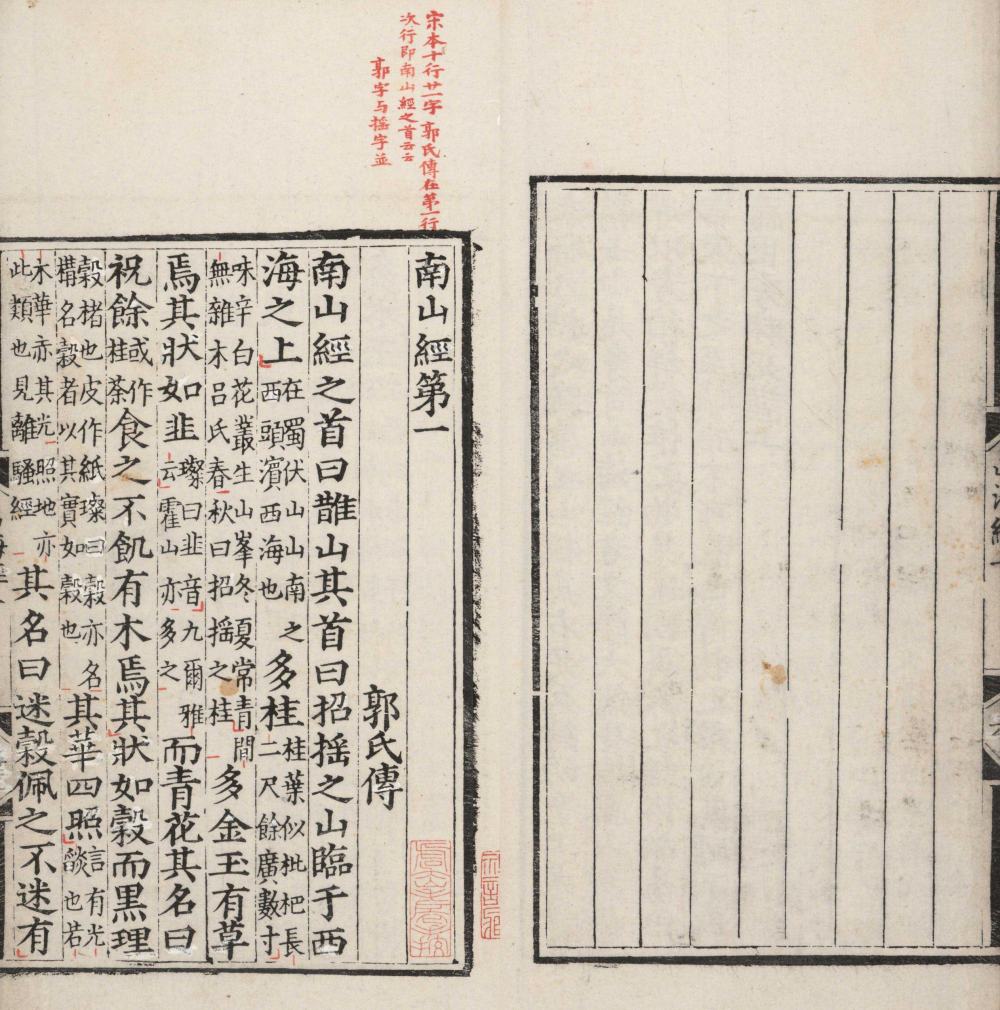 宋本十行廿一字 郭氏傳在第一行
次行即南山經之首云云
郭字与摇字並
南山經第一
郭氏傳
南山經之首曰䧿山其首曰招摇之山臨于西
海之上在蜀伏山山南之西頭濱西海也多桂桂葉似枇杷長二尺餘廣數寸
味辛白花叢生山峯冬夏常青間無雜木呂氏春秋曰招摇之桂多金玉有草
焉其狀如韭璨曰韭音九爾雅云霍山亦多之而青花其名曰
祝餘或作桂荼食之不飢有木焉其狀如榖而黑理
榖楮也皮作紙璨曰榖亦名構名榖者以其實如榖也其華四照言有光燄也若
木華亦其光照地亦此類也見離騷經其名曰迷榖佩之不迷有